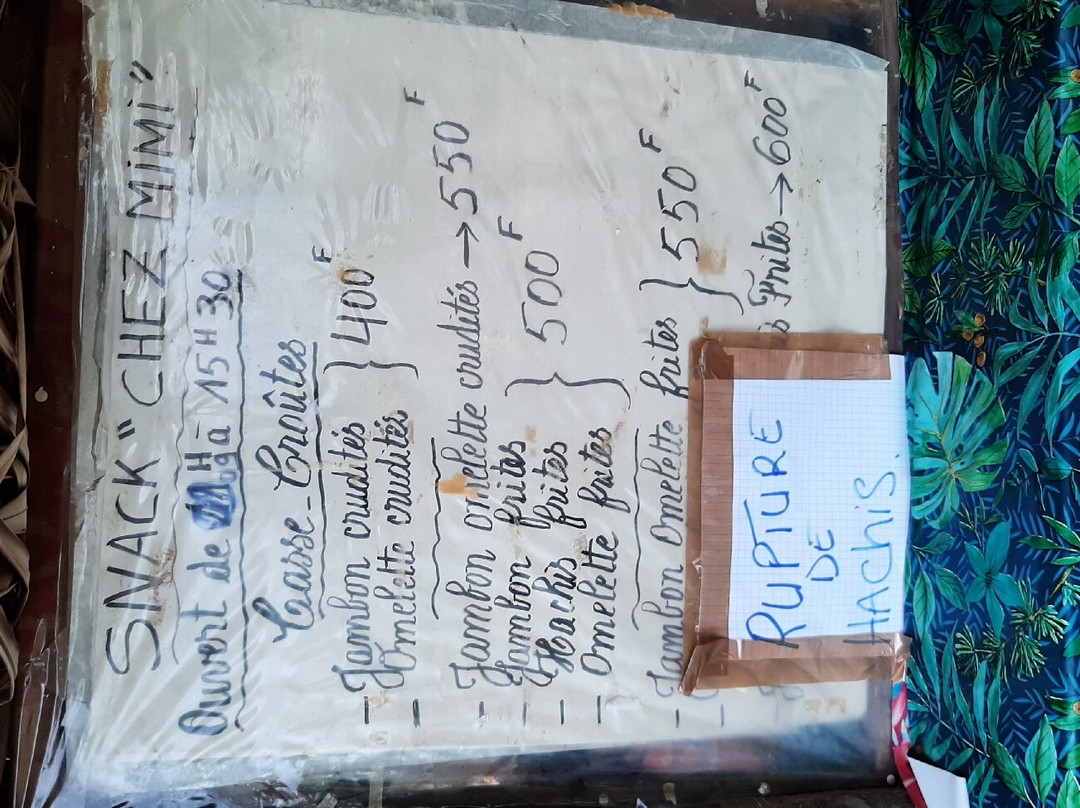 SNACK "CHEZ MIMI"
Ouvert de H à 15H30
Casse-Croûtes
- Jambon crudités } 400F
- Omelette crudités
- Jambon omelette crudités → 550F
- Jambon frites } 500F
- Hachis frites
- Omelette frites
- Jambon Omelette frites } 550F
-
Frites → 600F
RUPTURE
DE
HACHIS.